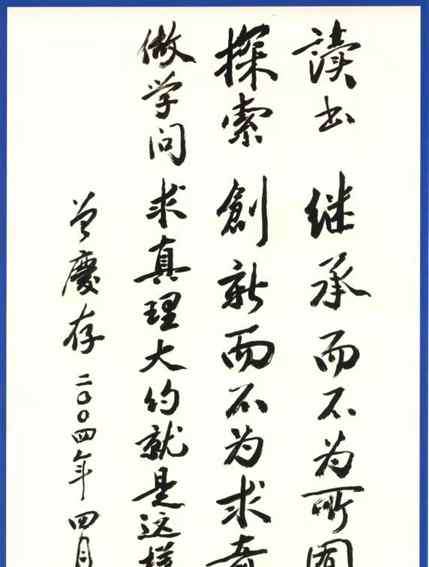 读书 继承而不为所囿
探索 創新而不为求奇
做学问 求真理大约就是这样
曾慶存 二〇〇四年四月